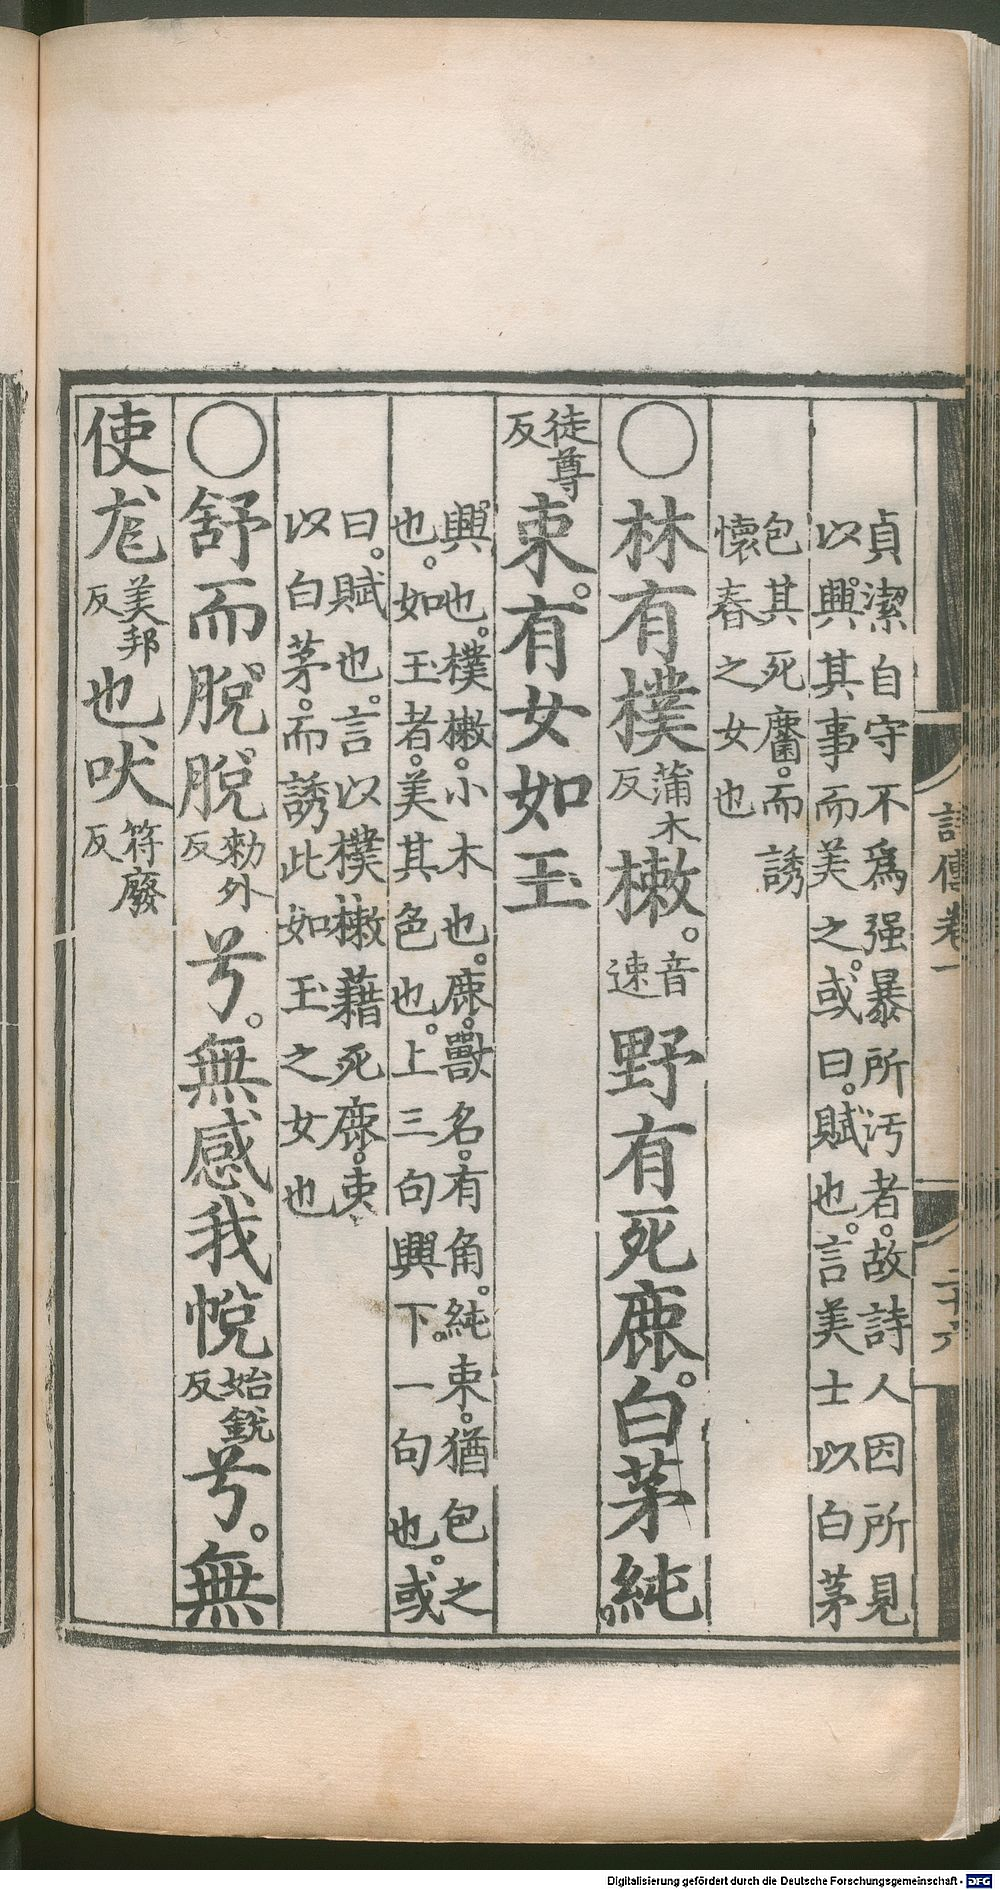 貞潔自守不爲强暴所汚者。故詩人因所見
以興其事而美之。或曰。賦也。言美士以白茅
包其死麕。而誘
懷春之女也
○林有樸蒲木反樕。音速野有死鹿。白茅純
徒尊反束。有女如玉
興也。樸樕。小木也。鹿。獸名。有角。純束。猶包之
也。如玉者。美其色也。上三句興下。一句也。或
曰。賦也。言以樸樕藉死鹿。束
以白茅。而誘此如玉之女也
○舒而脫脫勑外反兮。無感我帨始銳反兮。無
使尨美邦反也吠符廢反
詩傳卷一
二十六
Digitalisierung gefördert durch die Deutsche Forschungsgemeinschaft - DFG